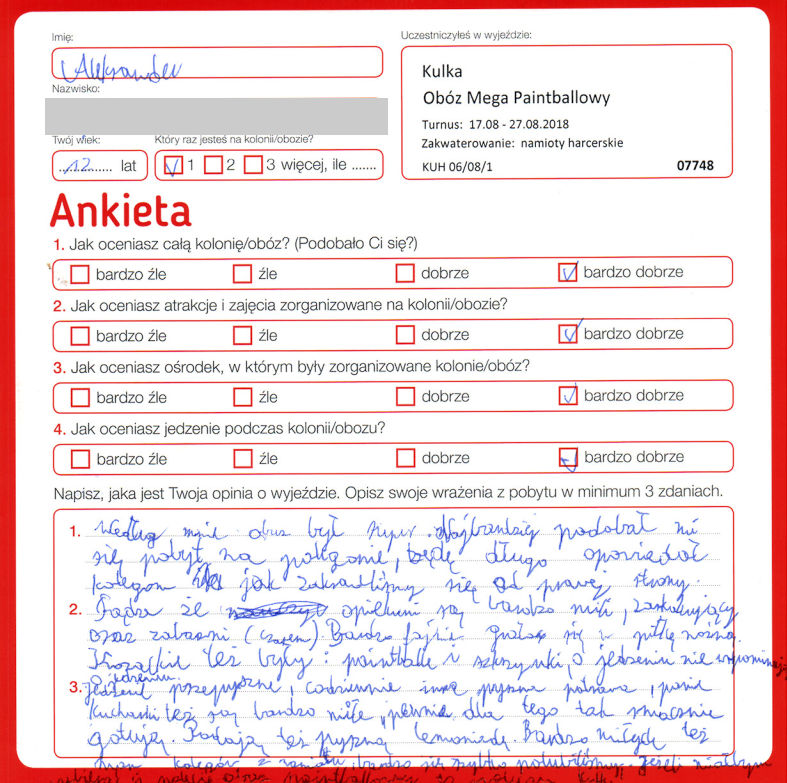 Imię:
Aleksander
Nazwisko:
Twój wiek:
12 lat
Który raz jesteś na kolonii/obozie?
1 2 3 więcej, ile .......
Uczestniczyłeś w wyjeździe:
Kulka
Obóz Mega Paintballowy
Turnus: 17.08 - 27.08.2018
Zakwaterowanie: namioty harcerskie
KUH 06/08/1 07748
Ankieta
1. Jak oceniasz całą kolonię/obóz? (Podobało Ci się?)
bardzo źle źle dobrze bardzo dobrze
2. Jak oceniasz atrakcje i zajęcia zorganizowane na kolonii/obozie?
bardzo źle źle dobrze bardzo dobrze
3. Jak oceniasz ośrodek, w którym były zorganizowane kolonie/obóz?
bardzo źle źle dobrze bardzo dobrze
4. Jak oceniasz jedzenie podczas kolonii/obozu?
bardzo źle źle dobrze bardzo dobrze
Napisz, jaka jest Twoja opinia o wyjeździe. Opisz swoje wrażenia z pobytu w minimum 3 zdaniach.
1. Według mnie obuz był super. Najbardziej podobał mi
się pobyt na poligonie, będę długo opowiadał
kolegom jak zakradliśmy się od prawej strony.
2. Sądze że opiekuni są bardzo mili,
oraz zabawni (czasem). Bardzo fajnie grało się w piłkę nożną.
też były: paintballe i szkrzynki, o jedzeniu nie wspominając
o jedzeniu.
3. Jedzenie przepyszne, codziennie inna pyszna potrawa, panie
kucharki też są bardzo miłe, pewnie dla tego tak smacznie
gotują. Podają też pyszną lemoniadę. Bardzo miłych też
mam kolegów z namiotu, bardzo się szybko polubiliśmy. Jeżeli miałbym